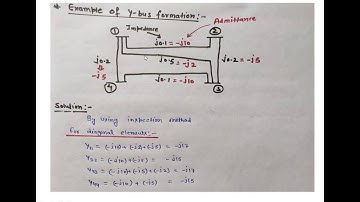 * Example of Y-bus formation:-
Impedance
Admittance
1
2
j0.1 = -j10
j0.2
-j5
j0.5 = -j2
j0.2 = -j5
j0.1 = -j10
4
3
Solution:-
By using inspection method
for diagonal elements:-
Y11 = (-j10)+(-j2)+(-j5) = -j17
Y22 = (-j10)+(-j5) = -j15
Y33 = (-j10)+(-j5)+(-j2) = -j17
Y44 = (-j10) + (-j5) = -j15